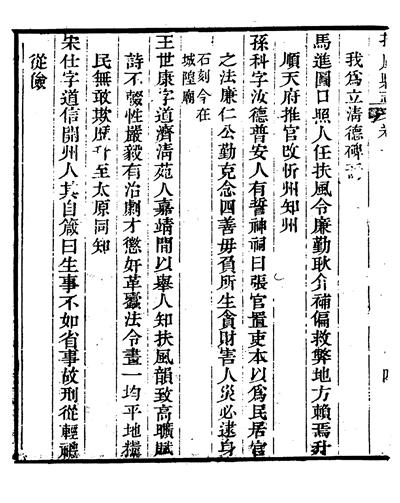 我爲立清德碑
馬進圖口照人任扶風令廉勤耿介補偏救弊地方賴焉升
順天府推官改忻州知州
孫科字汝德普安人有誓神祠曰張官置吏本以爲民居官
之法廉仁公勤克念四善毋負所生貪財害人災必逮身
石刻今在
城隍廟
王世康字道濟清苑人嘉靖間以舉人知扶風韻致高曠賦
詩不輟性嚴毅有治劇才懲奸革蠹法令畫一均平地糧
民無敢欺歷升至太原同知
宋仕字道信開州人其自箴曰生事不如省事故刑從輕禮
從儉